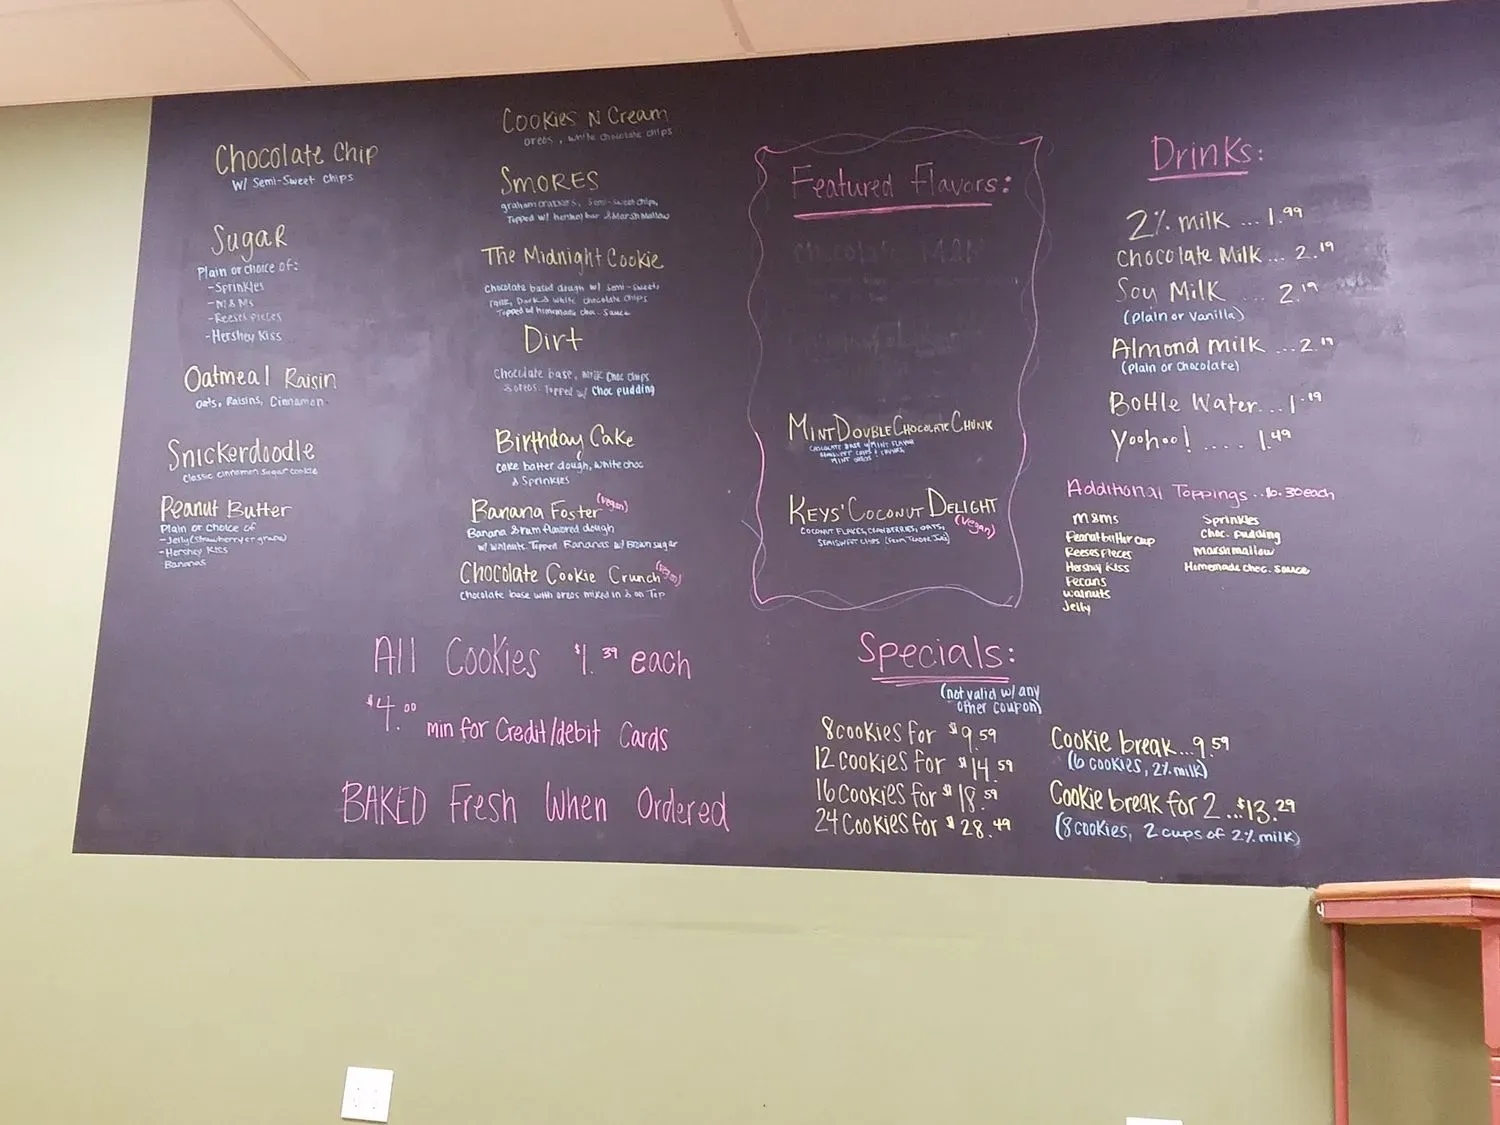 Chocolate Chip
w/ Semi-Sweet Chips
Sugar
Plain or choice of:
-Sprinkles
-M&Ms
-Reeses Pieces
-Hershey Kiss
Oatmeal Raisin
Oats, Raisins, Cinnamon
Snickerdoodle
Classic cinnamon sugar cookie
Peanut Butter
Plain or choice of
-Jelly (strawberry or grape)
-Hershey Kiss
Bananas
Cookies N Cream
oreos, white chocolate chips
SMORES
graham crackers, semi-sweet chips,
Topped w/ hershey bar & Marshmallow
The Midnight Cookie
Chocolate based dough w/ semi-sweet,
milk, Dark & white chocolate chips
Topped w/ homemade choc. sauce
Dirt
Chocolate base, milk choc chips
& oreos. Topped w/ choc pudding
Birthday Cake
Cake batter dough, white choc
& Sprinkles
Banana Foster (vegan)
Banana & rum flavored dough
w/ walnuts. Topped Bananas w/ Brown sugar
Chocolate Cookie Crunch (vegan)
Chocolate base with oreos mixed in & on Top
All Cookies $1.39 each
$4.00 min for Credit/debit Cards
BAKED Fresh When Ordered
Featured Flavors:
Chocolate M&M
MINT DOUBLE CHOCOLATE CHUNK
CHOCOLATE BASE w/ MINT FLAVOR
MINT OREOS
KEYS' COCONUT DELIGHT
(vegan)
COCONUT FLAKES, CRANBERRIES, OATS,
SEMISWEET CHIPS (From Trader Joe's)
Specials:
(not valid w/ any
other coupon)
8 cookies for $9.59
12 cookies for $14.59
16 cookies for $18.59
24 cookies for $28.49
Cookie break...9.59
(6 cookies, 2% milk)
Cookie break for 2...$13.29
(8 cookies, 2 cups of 2% milk)
Drinks:
2% milk ... 1.99
Chocolate Milk... 2.19
Soy Milk ... 2.19
(Plain or Vanilla)
Almond milk ...2.19
(Plain or Chocolate)
Bottle Water...1.19
Yoohoo! .... 1.49
Additional Toppings..$0.30 each
M&Ms
Peanut butter cup
Reeses Pieces
Hershey Kiss
Pecans
walnuts
Jelly
Sprinkles
Choc. pudding
Marshmallow
Homemade choc. sauce